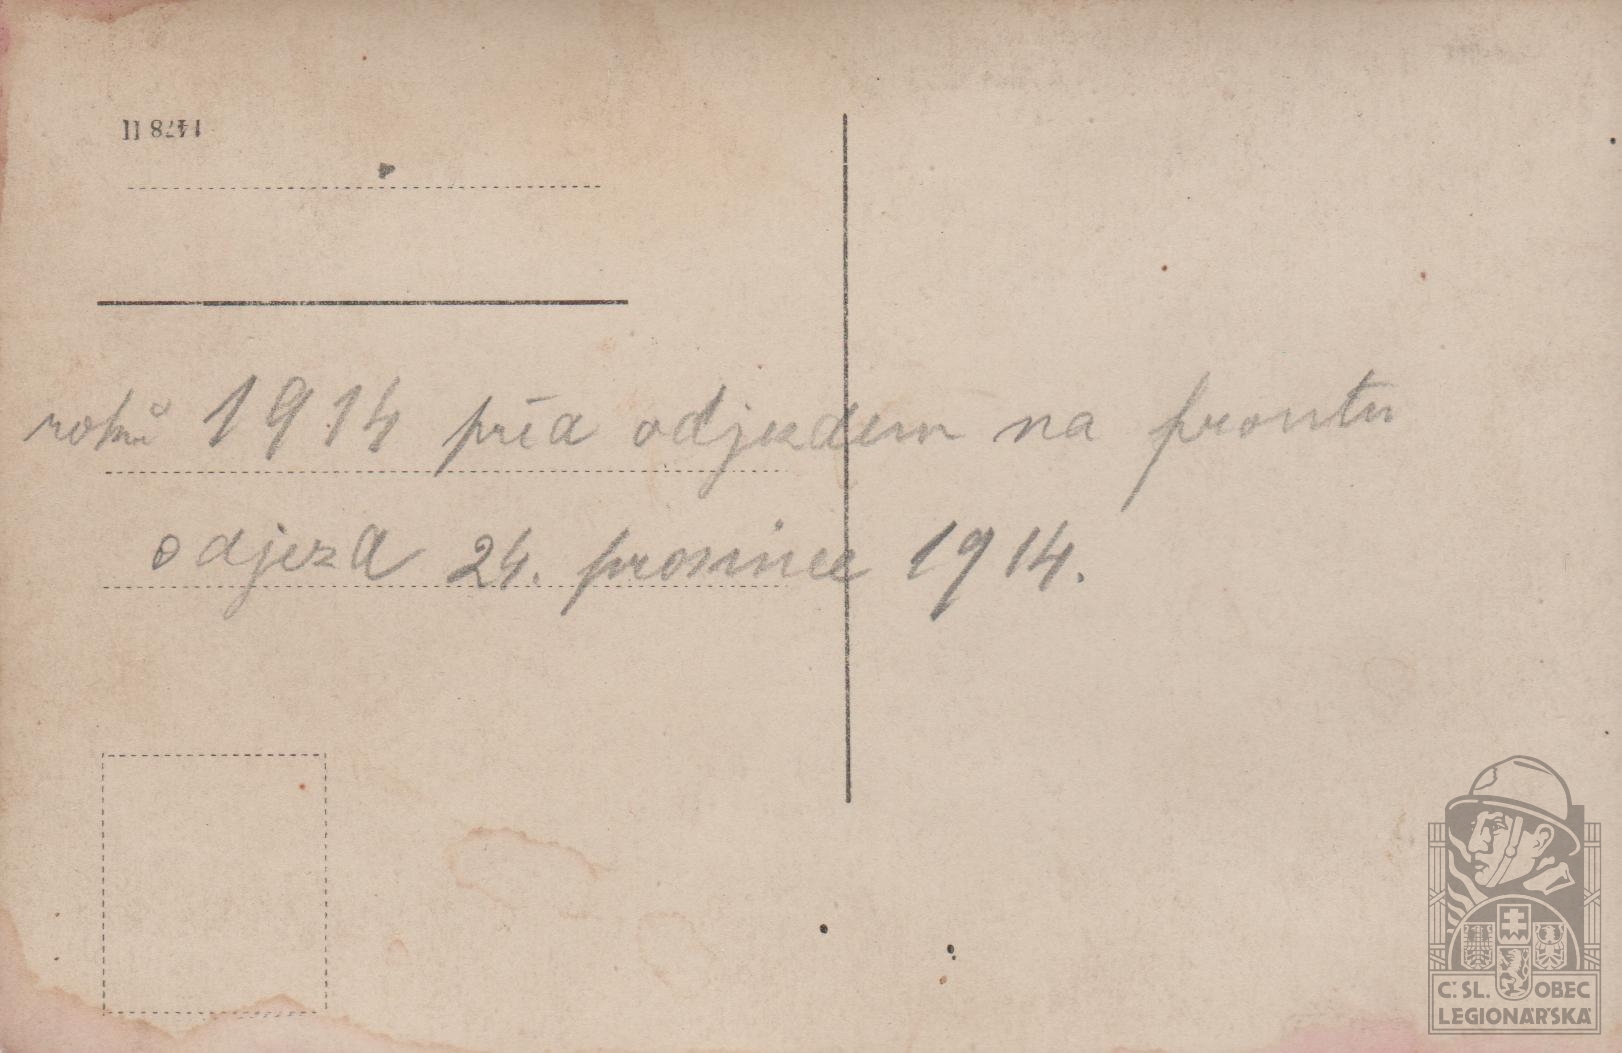 1478 II
roků 1914 přěd odjezdem na frontu
odjezd 24. prosince 1914.
Č.SL. OBEC
LEGIONÁŘSKÁ